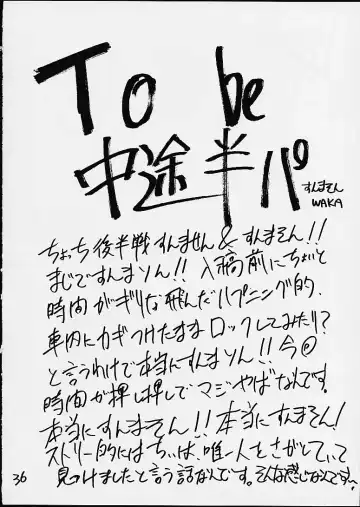 To be
中途半パ
すんません
WAKA
ちょっち後半戦すんません&すんません!!
まじですんません!! 入稿前にちょいと
時間がギリな飛んだハプニング的、
車内にカギつけたままロックしてみたり?
と言うわけで本当にすんません!! 今回
時間が押し押しでマジやばなんです。
本当にすんません!! 本当にすんません!
ストーリー的にはちぃは、唯一人をさがしてて
見つけましたと言う話なんです。そんな感じなんです〜
36